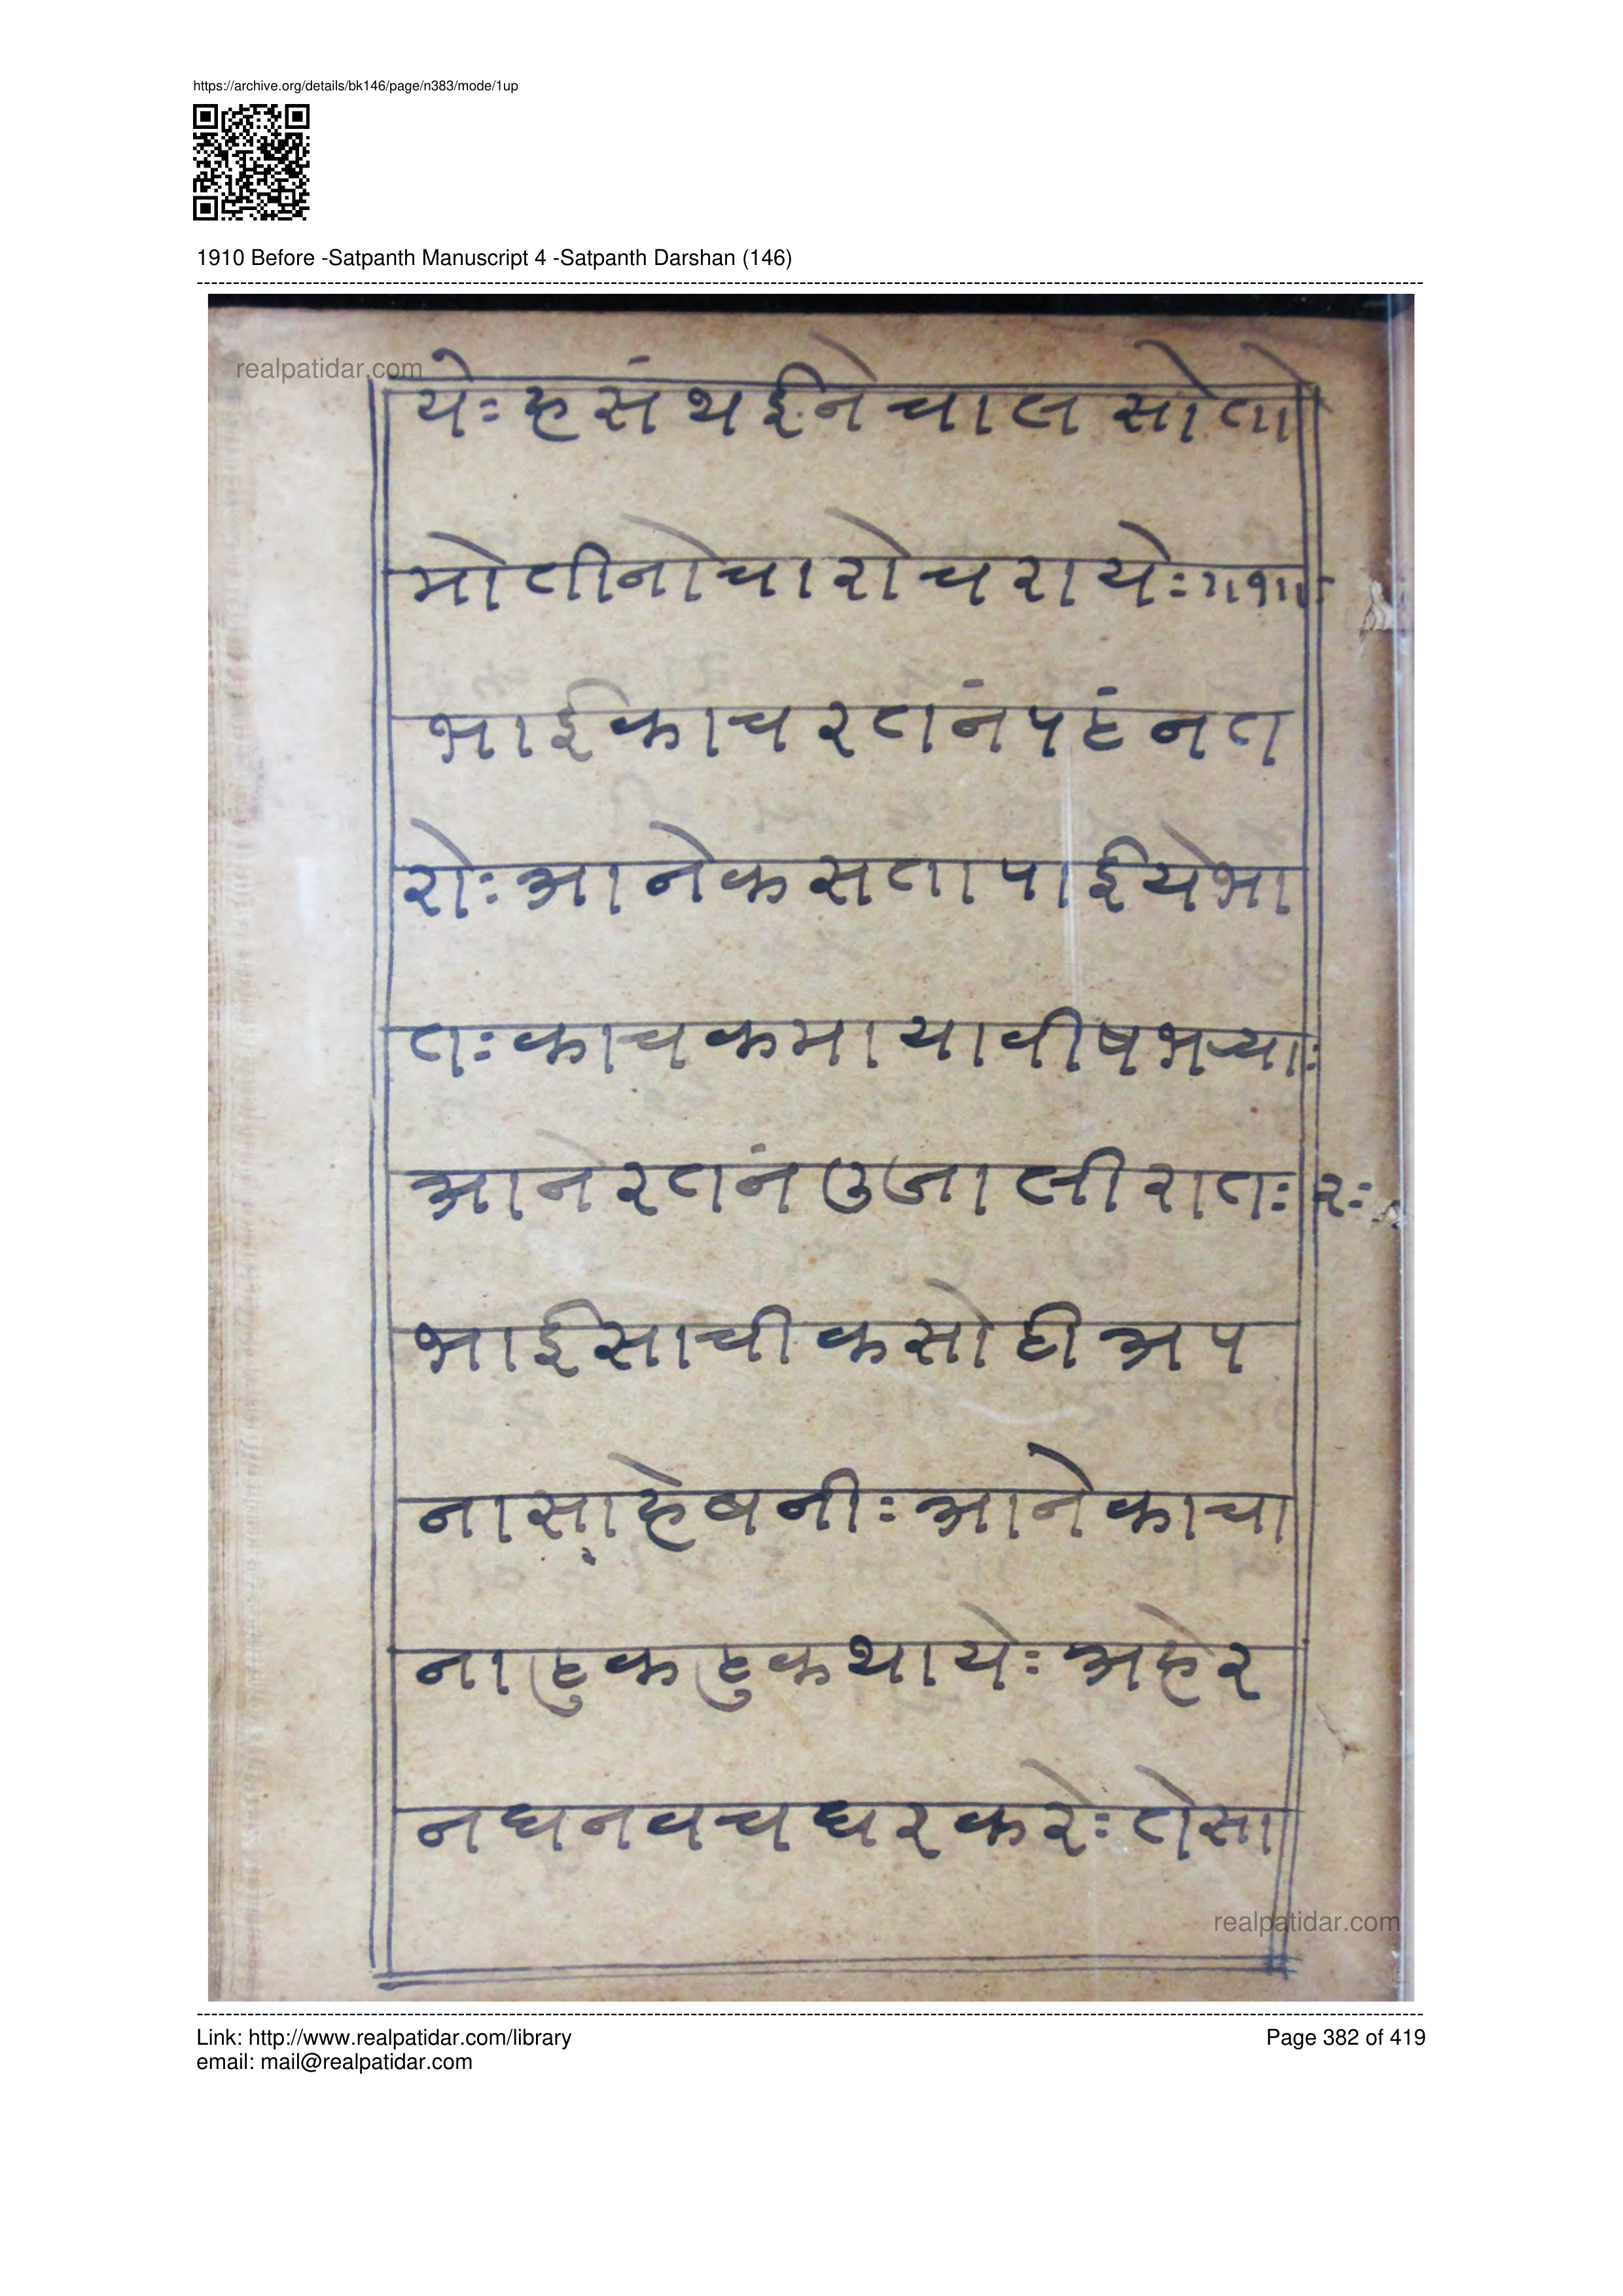 https://archive.org/details/bk146/page/n383/mode/1up
1910 Before -Satpanth Manuscript 4 -Satpanth Darshan (146)
realpatidar.com
येः हसं थईने चाल सो तो
मोतीनो चारो चरायेः ॥१॥ः
भाई काच रतनं पटंनत
रोः आनेक सता पाईये भा
तः काचक माया वीष भर्याः
आने रतनं उजाली रातः २ः
भाई साची कसोटी अप
ना साहेबनीः आने काचा
ना टुकटुक थायेः अहेर
नघनवच घर करेः तेसा
realpatidar.com
Link: http://www.realpatidar.com/library
Page 382 of 419
email: mail@realpatidar.com